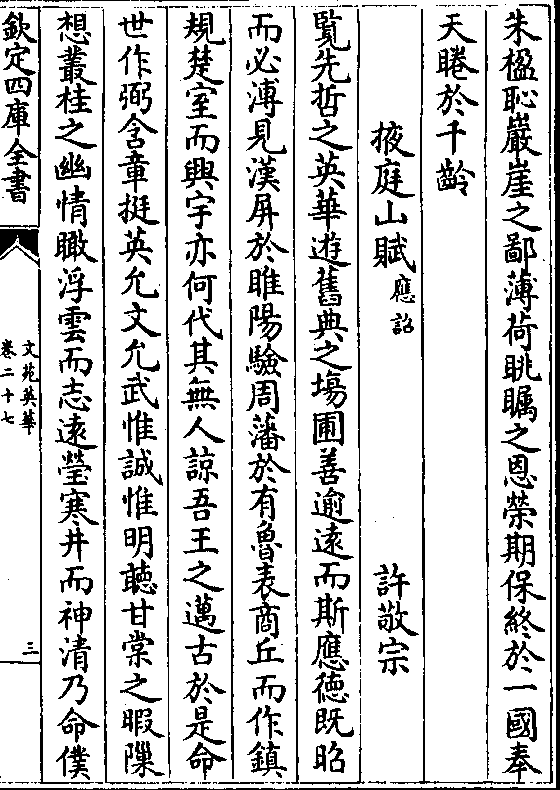 朱楹恥巖崖之鄙薄荷眺矚之恩榮期保終於一國奉
天睠於千齡
掖庭山賦應詔　許敬宗
覧先哲之英華遊舊典之塲圃善逾遠而斯應德既昭
而必溥見漢屏於睢陽驗周藩於有魯表商丘而作鎮
規楚室而興宇亦何代其無人諒吾王之邁古於是命
世作弼含章挺英允文允武惟誠惟明聽甘棠之暇隟
想叢桂之幽情瞰浮雲而志遠瑩寒井而神清乃命僕
欽定四庫全書
文苑英華
卷二十七
三